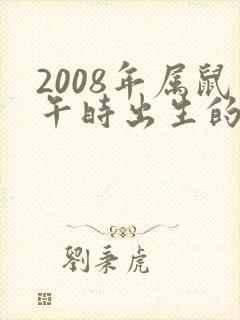 2008年属鼠
午时出生的
劉秉虎